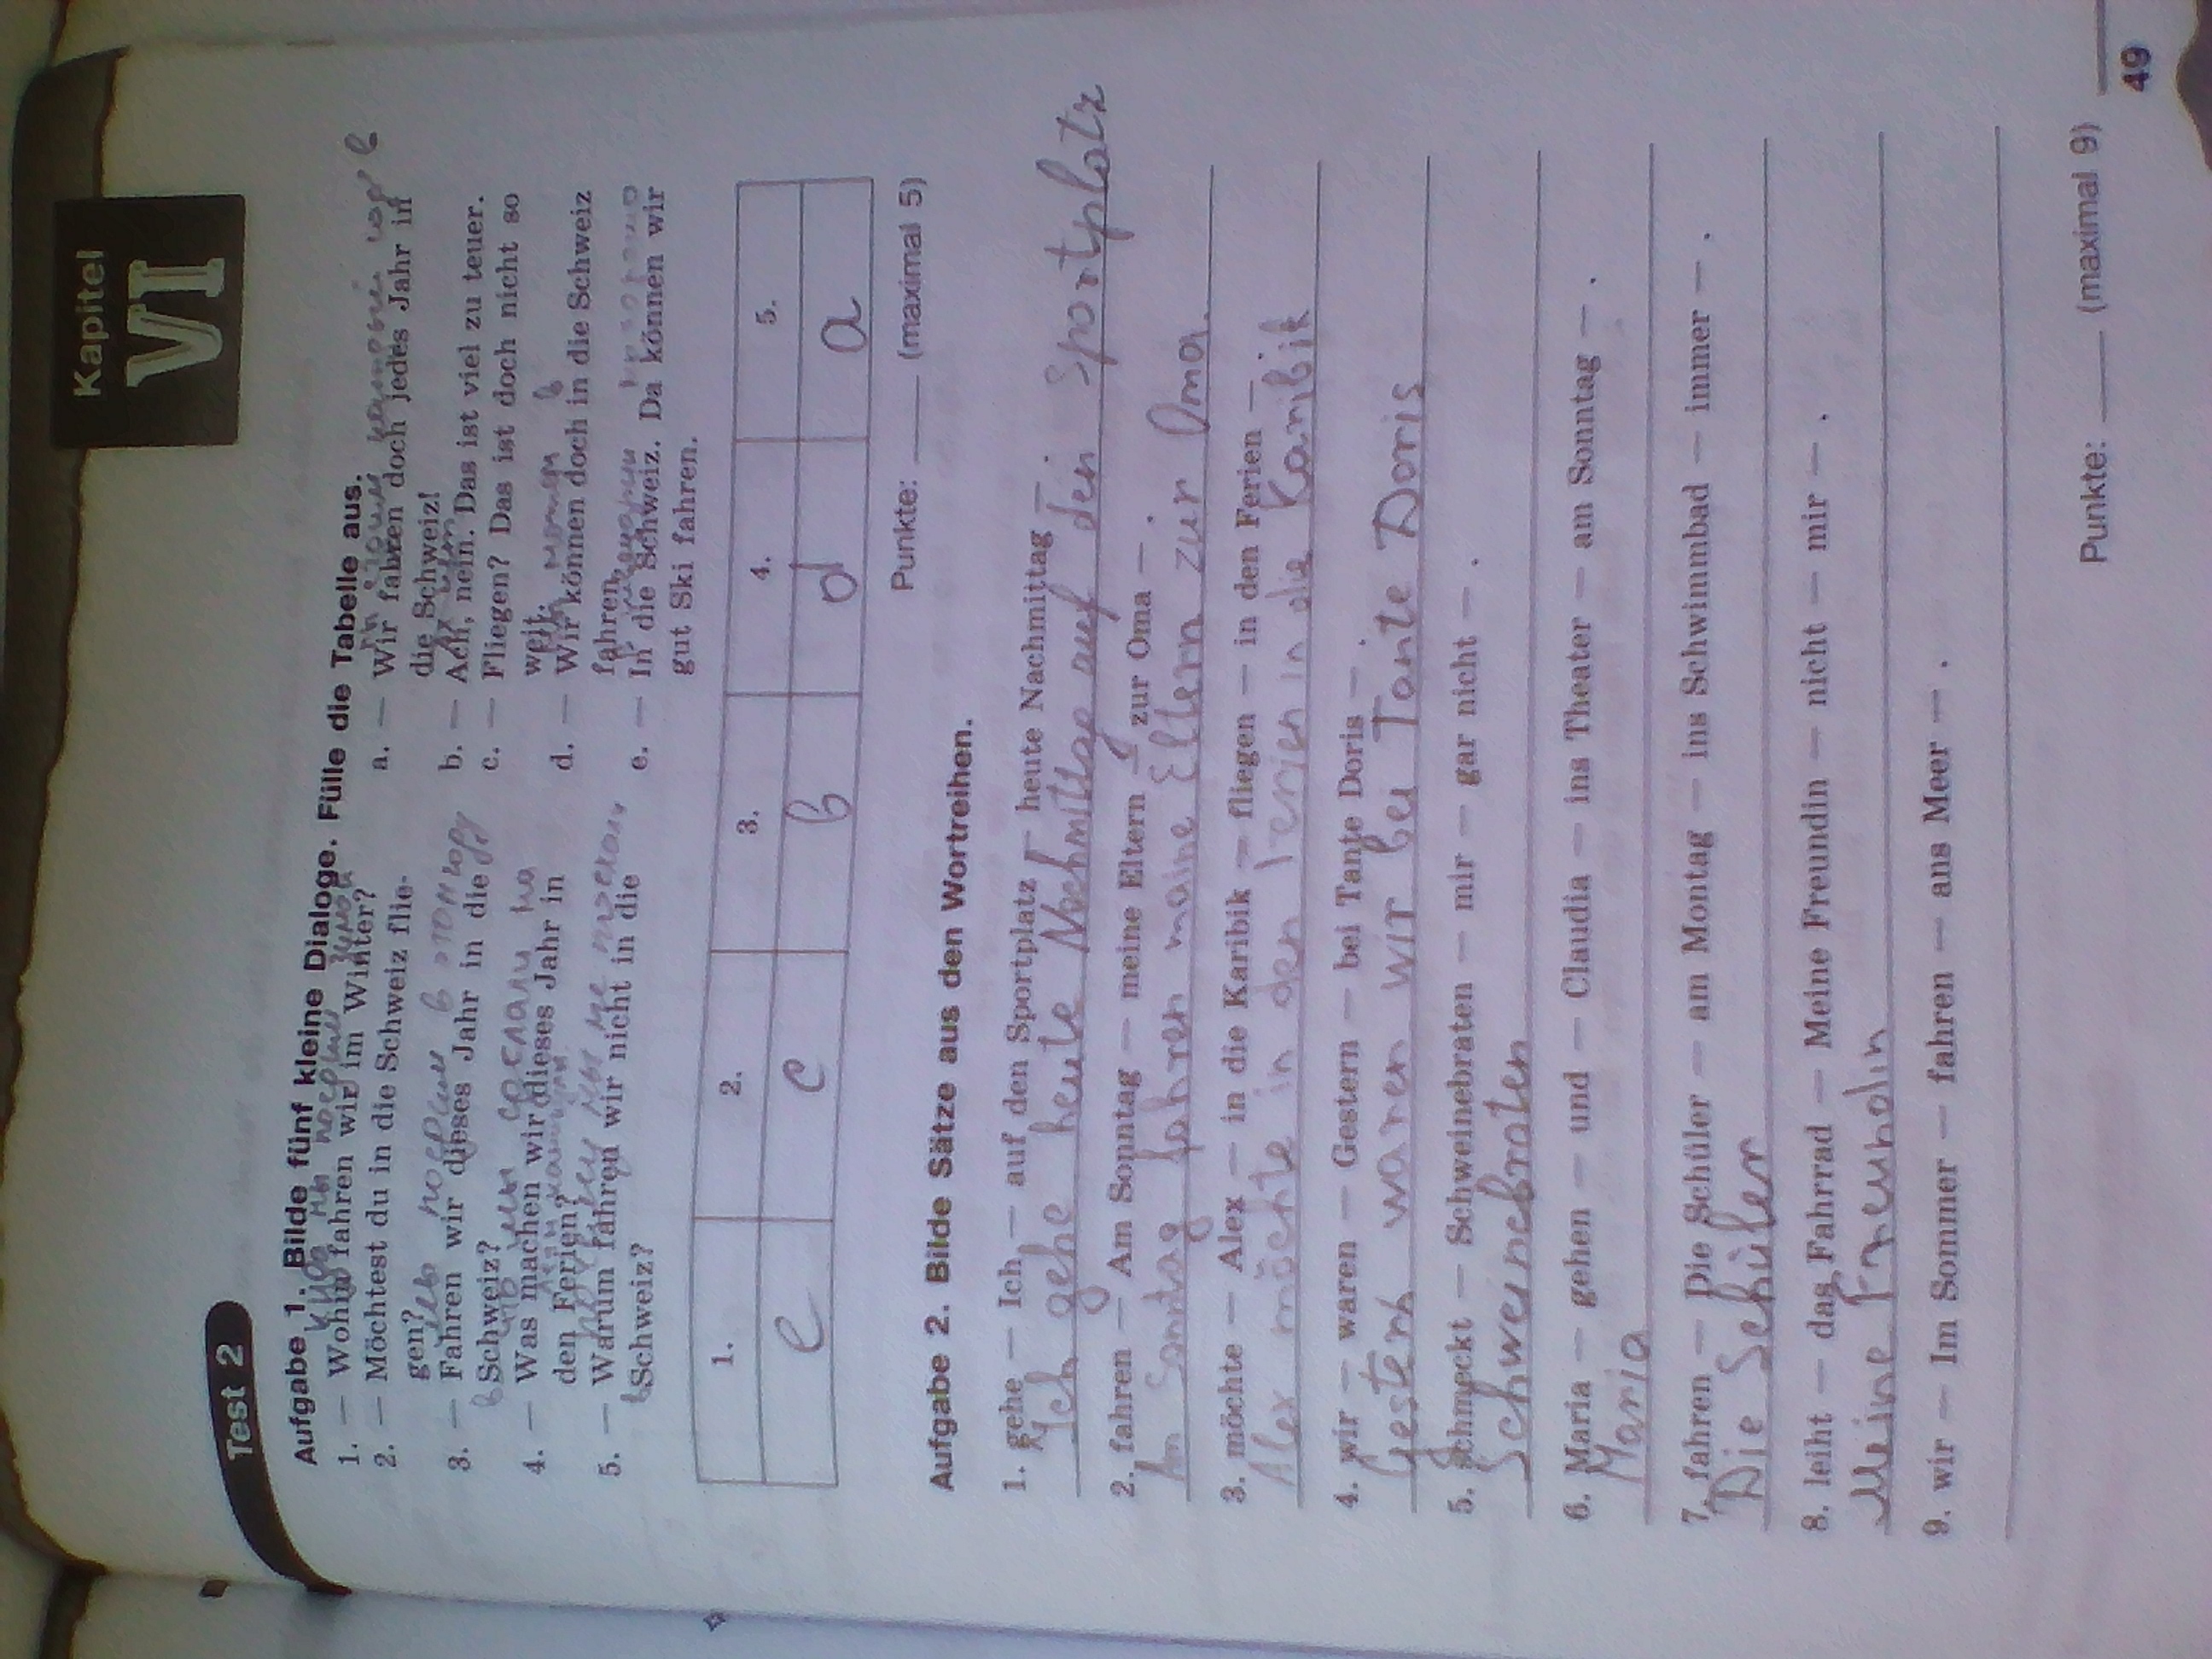 Test 2
Kapitel
VI
Aufgabe 1. Bilde fünf kleine Dialoge. Fülle die Tabelle aus.
1. — Wohin fahren wir im Winter?
2. — Möchtest du in die Schweiz flie-
gen?
3. — Fahren wir dieses Jahr in die
Schweiz?
4. — Was machen wir dieses Jahr in
den Ferien?
5. — Warum fahren wir nicht in die
Schweiz?
a. — Wir fahren doch jedes Jahr in
die Schweiz!
b. — Ach, nein. Das ist viel zu teuer.
c. — Fliegen? Das ist doch nicht so
weit.
d. — Wir können doch in die Schweiz
fahren.
e. — In die Schweiz. Da können wir
gut Ski fahren.
1. 2. 3. 4. 5.
e c b d a
Punkte: ____ (maximal 5)
Aufgabe 2. Bilde Sätze aus den Wortreihen.
1. gehe — Ich — auf den Sportplatz — heute Nachmittag — .
Ich gehe heute Nachmittag auf den Sportplatz
2. fahren — Am Sonntag — meine Eltern — zur Oma — .
Am Sonntag fahren meine Eltern zur Oma.
3. möchte — Alex — in die Karibik — fliegen — in den Ferien — .
Alex möchte in den Ferien in die Karibik
4. wir — waren — Gestern — bei Tante Doris — .
Gestern waren wir bei Tante Doris
5. schmeckt — Schweinebraten — mir — gar nicht — .
Schweinebraten
6. Maria — gehen — und — Claudia — ins Theater — am Sonntag — .
Maria
7. fahren — Die Schüler — am Montag — ins Schwimmbad — immer — .
Die Schüler
8. leiht — das Fahrrad — Meine Freundin — nicht — mir — .
Meine Freundin
9. wir — Im Sommer — fahren — ans Meer — .
Punkte: ____ (maximal 9)
49